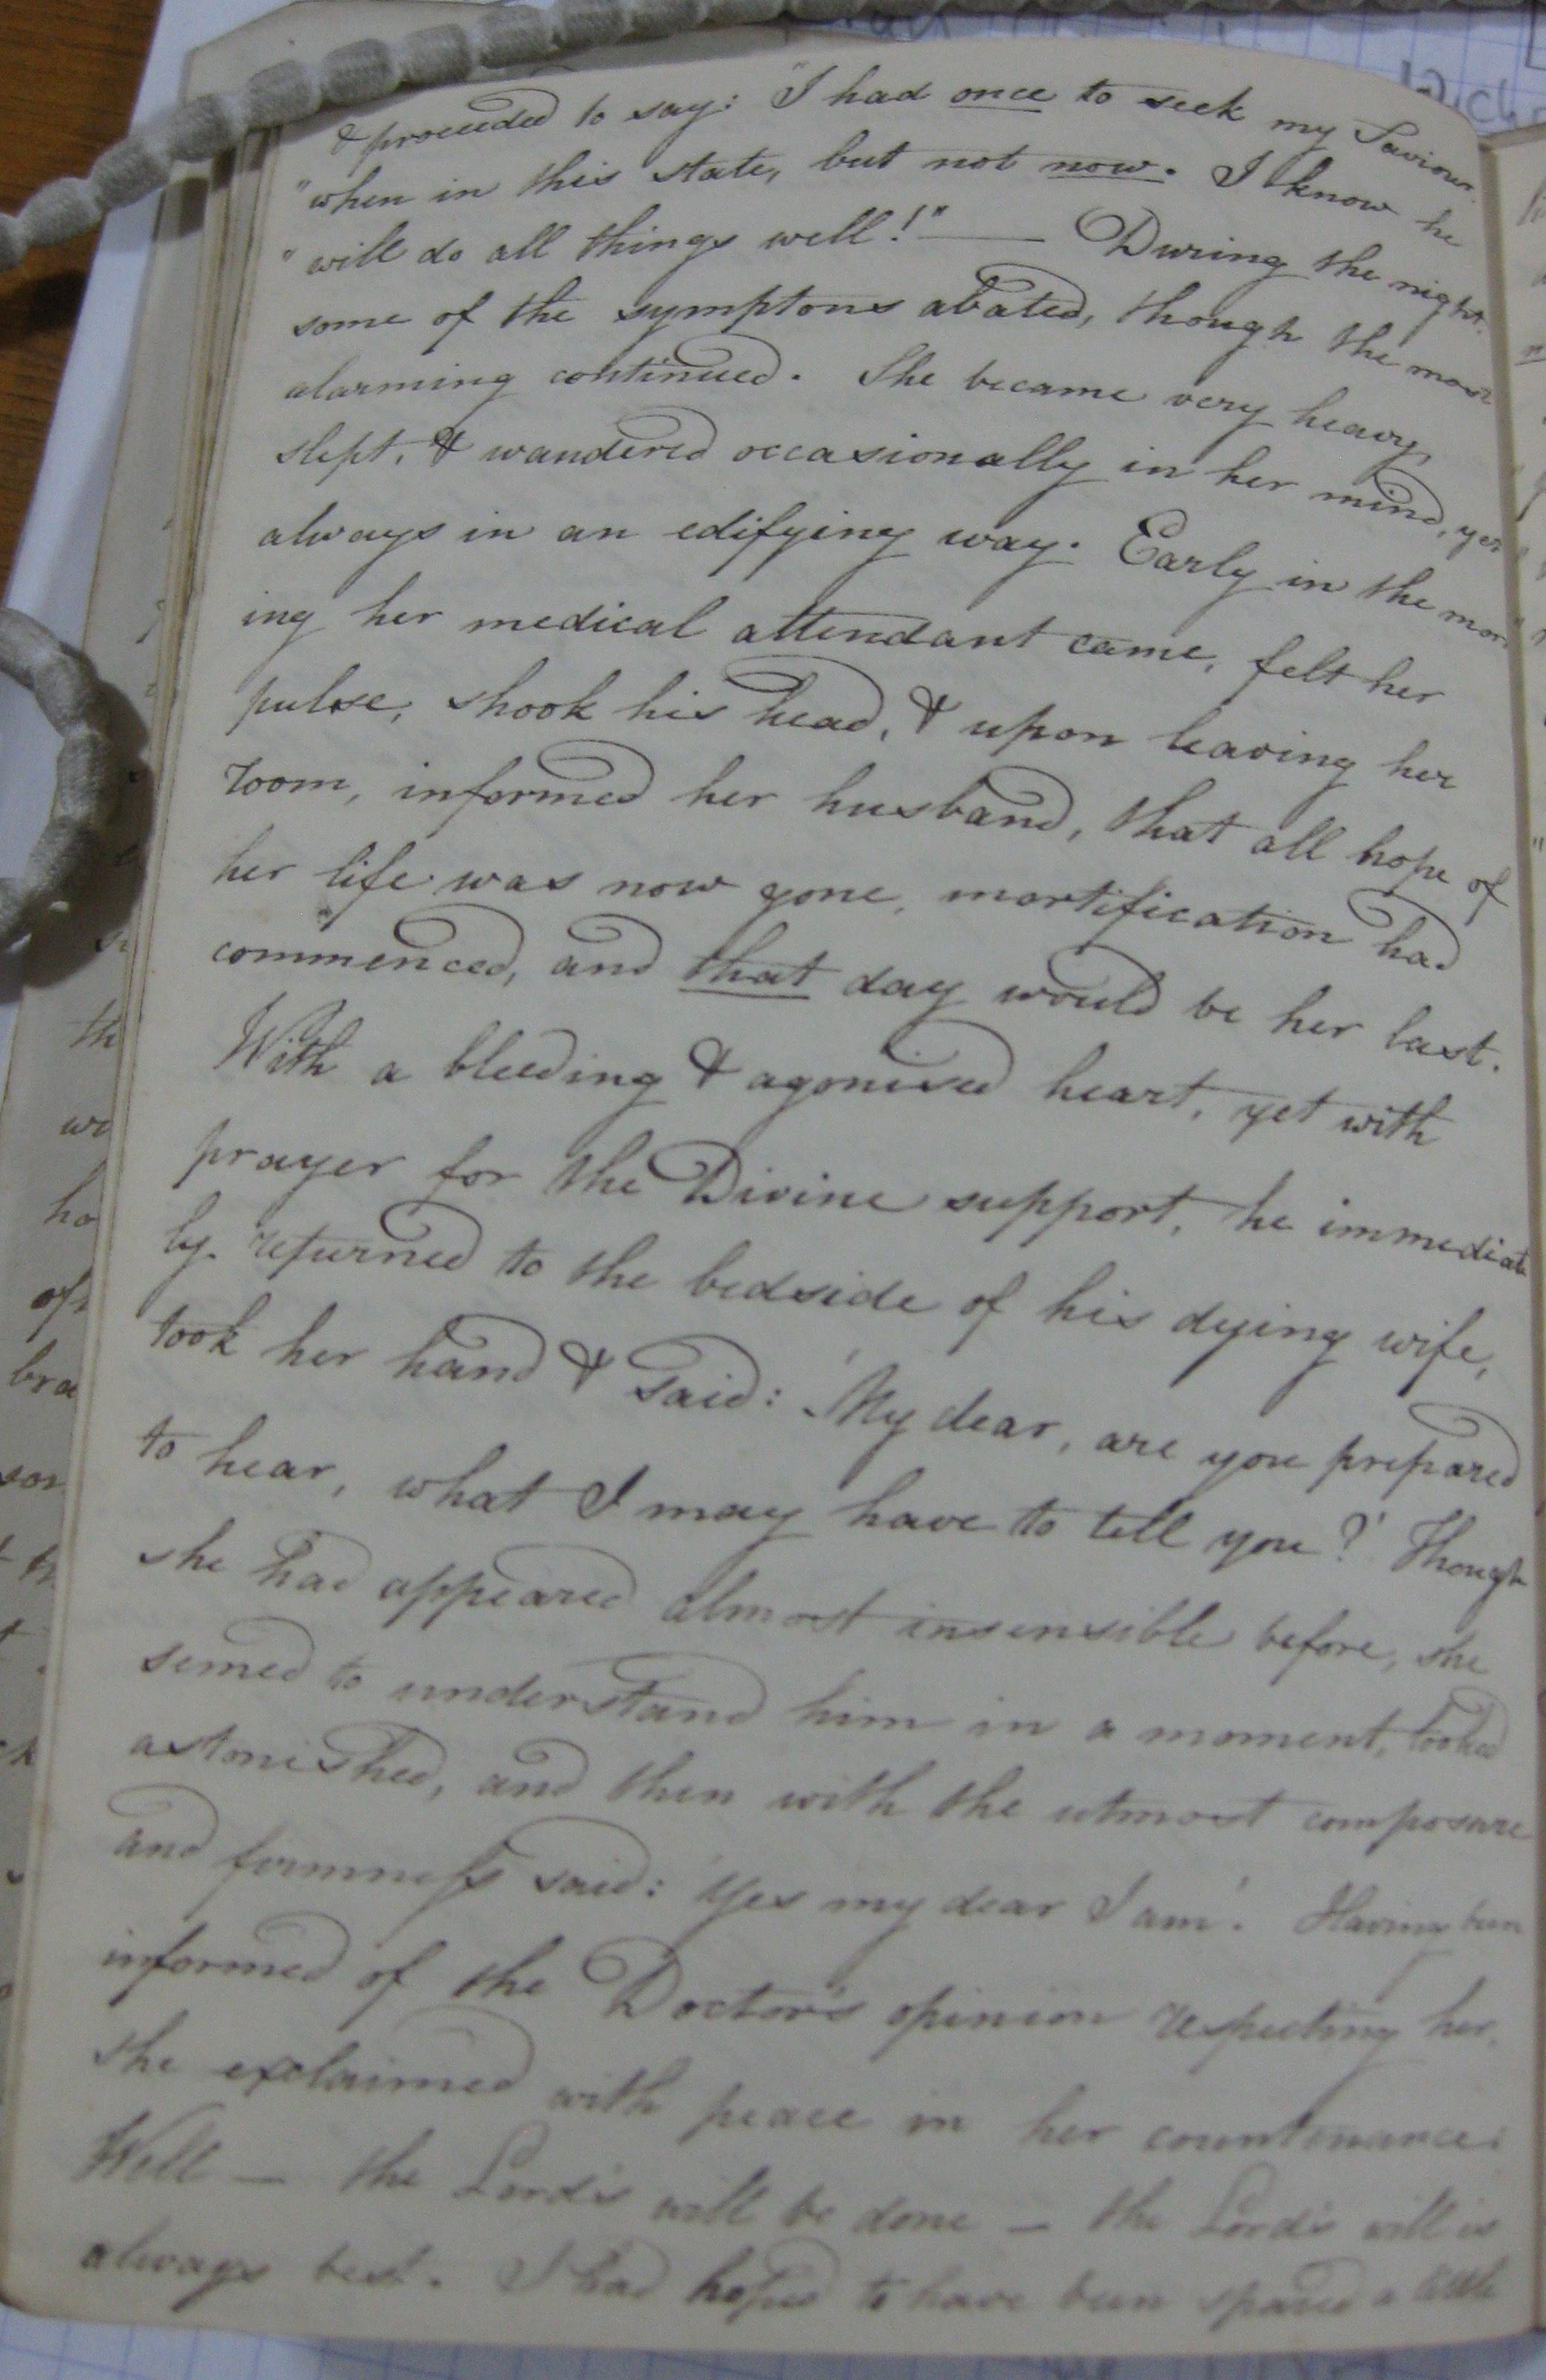 & proceeded to say: "I had once to seek my Saviour
"when in this state, but not now. I know he
"will do all things well!" — During the night
some of the symptons abated, though the most
alarming continued. She became very heavy,
slept, & wandered occasionally in her mind, yet
always in an edifying way. Early in the morn
ing her medical attendant came, felt her
pulse, shook his head, & upon leaving her
room, informed her husband, that all hope of
her life was now gone, mortification had
commenced, and that day would be her last.
With a bleeding & agonised heart, yet with
prayer for the Divine support, he immediate
ly returned to the bedside of his dying wife,
took her hand & said: 'My dear, are you prepared
to hear, what I may have to tell you?' Though
she had appeared almost insensible before, she
semed to understand him in a moment, looked
astonished, and then with the utmost composure
and firmness said: 'Yes my dear I am'. Having been
informed of the Doctor's opinion respecting her,
she exclaimed with peace in her countenance:
Well — the Lord's will be done — the Lord's will is
always best. I had hoped to have been spared a little